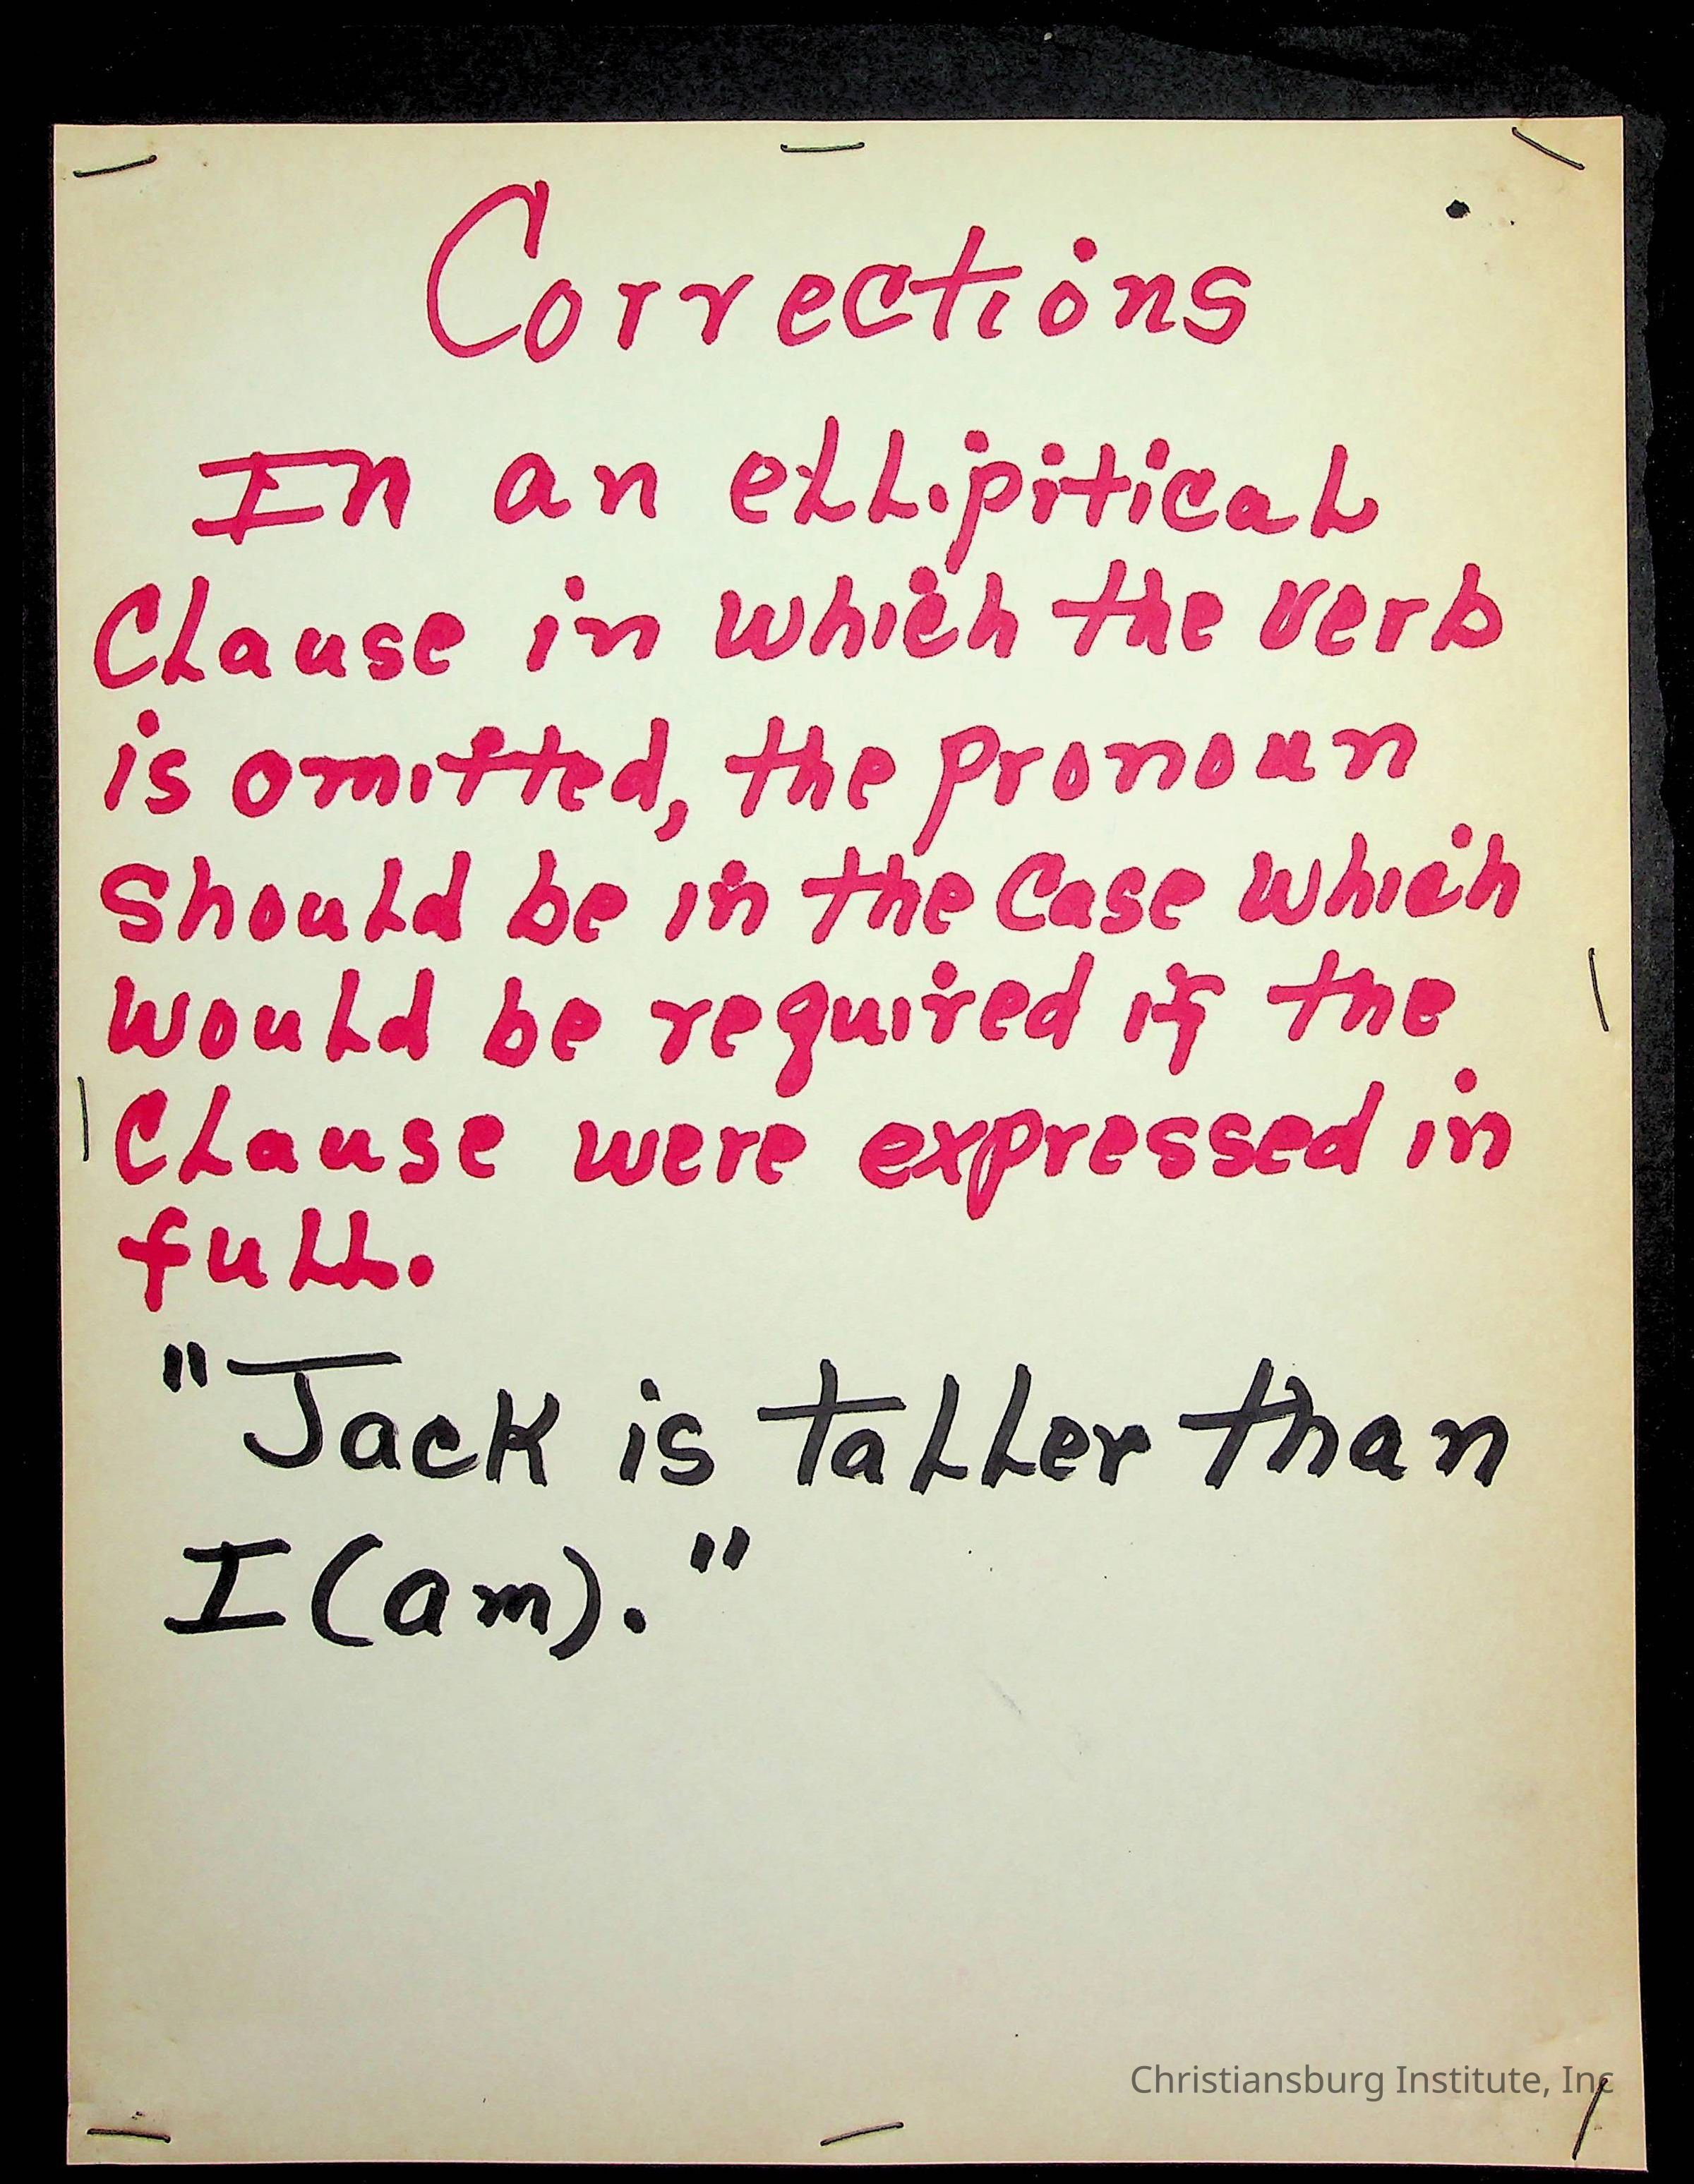 Corrections
In an ellipitical
Clause in which the verb
is omitted, the pronoun
should be in the case which
would be required if the
Clause were expressed in
full.
"Jack is taller than
I (am)."
Christiansburg Institute, Inc